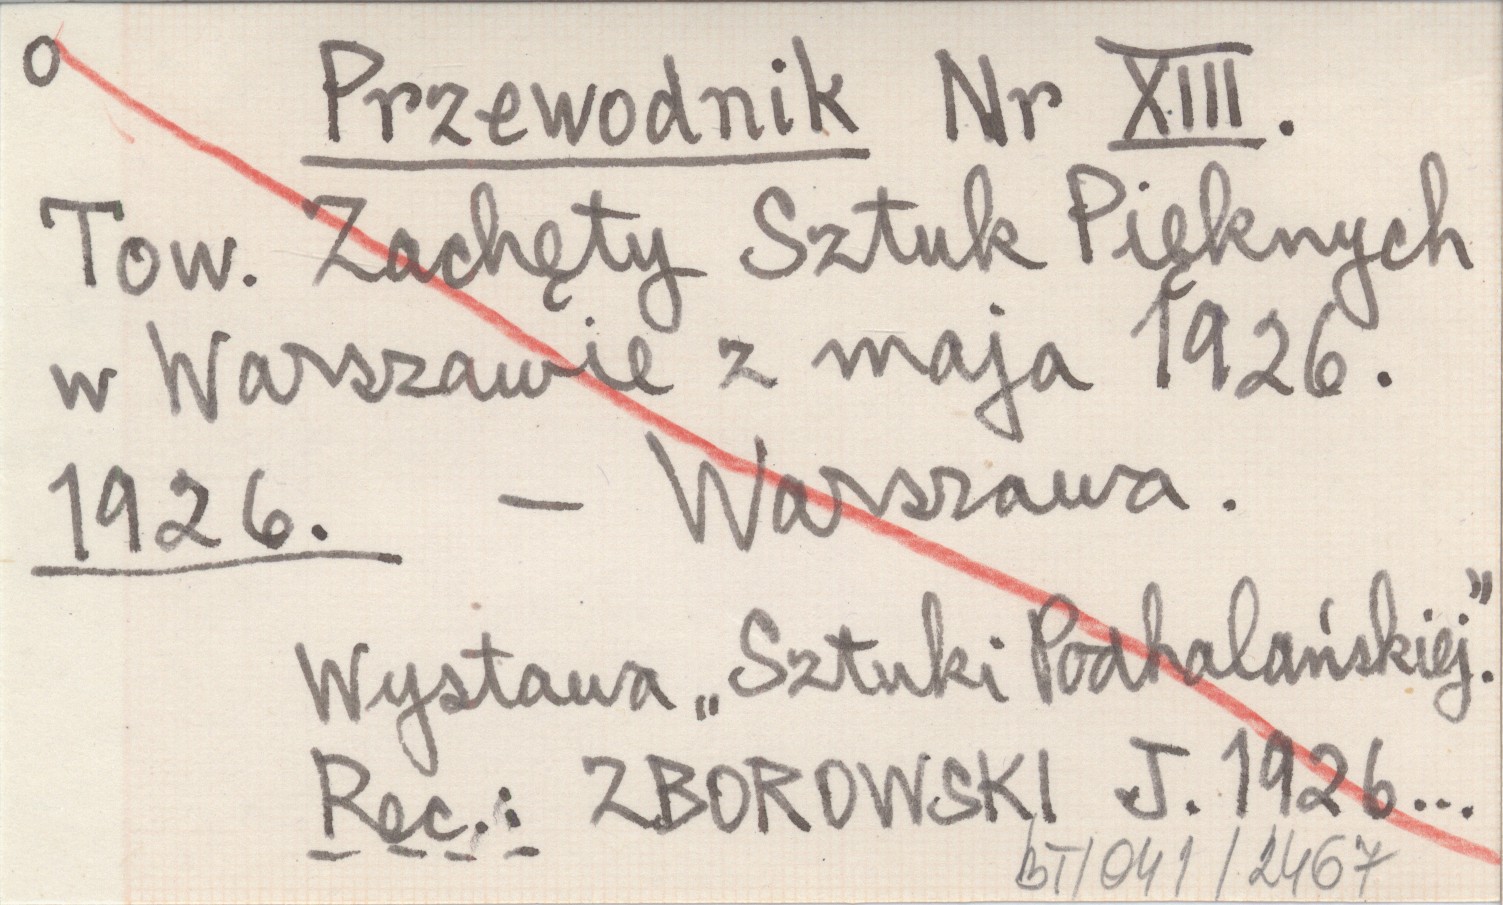 o Przewodnik Nr XIII.
Tow. Zachęty Sztuk Pięknych
w Warszawie z maja 1926.
1926. – Warszawa.
Wystawa „Sztuki Podhalańskiej".
Rec.: ZBOROWSKI J. 1926...
BT/041/2467